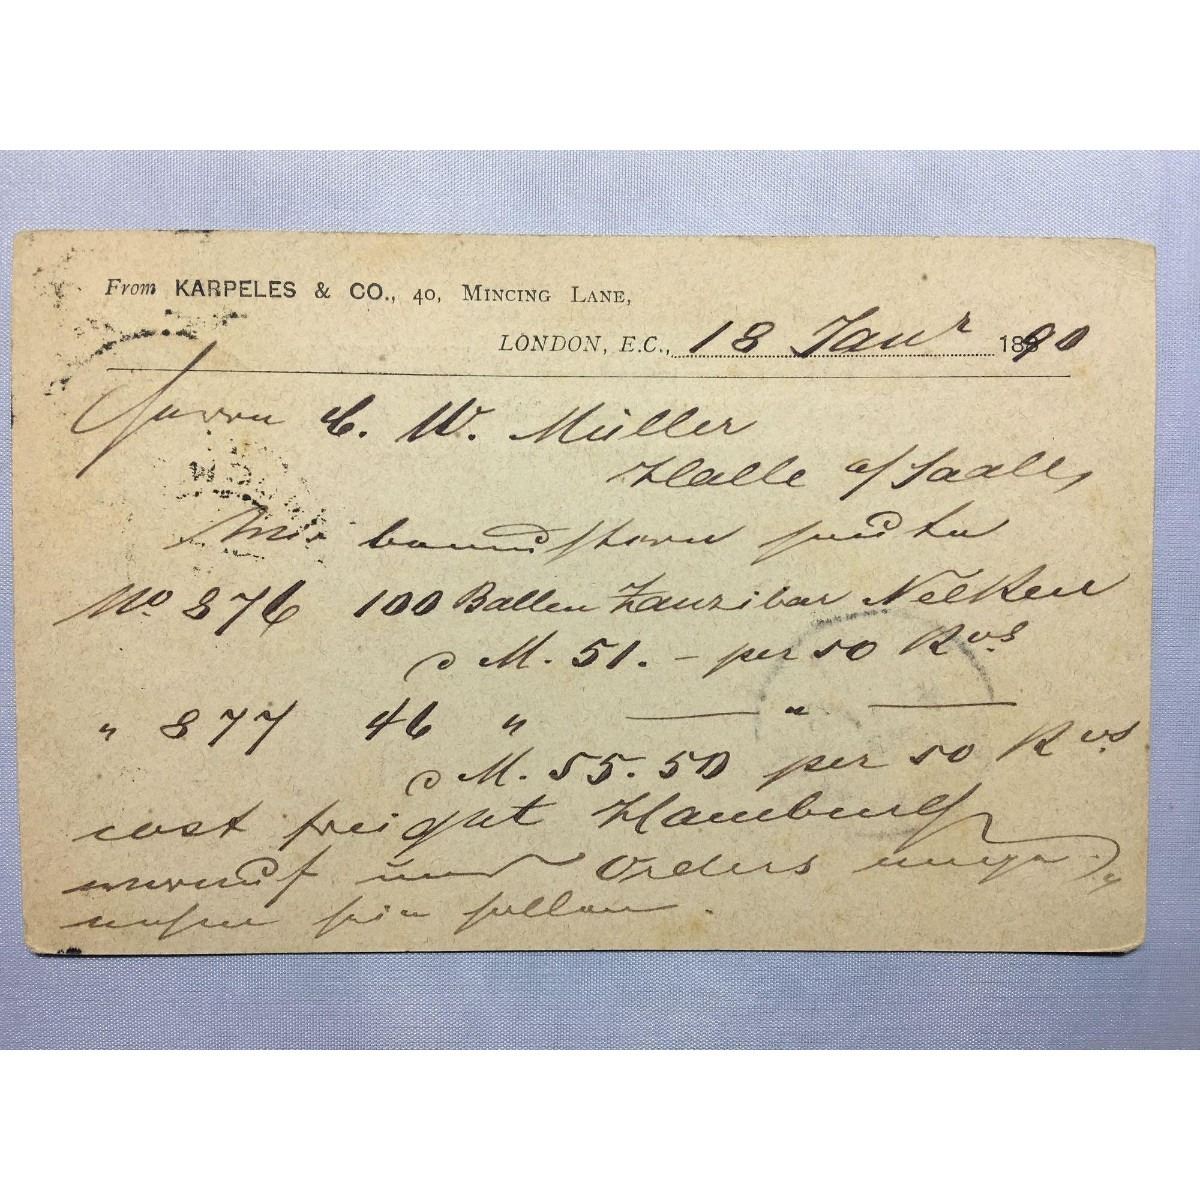 From KARPELES & CO., 40, MINCING LANE,
LONDON, E.C., 18 Janr 1890
Herrn C. W. Müller
Halle a/Saale
Wir bemustern heute
No 876 100 Ballen Zanzibar Nelken
à M. 51.— per 50 Kos
" 877 46 " — " —
à M. 55.50 per 50 Kos
cost freight Hamburg
worauf uns Orders
sein sollen.